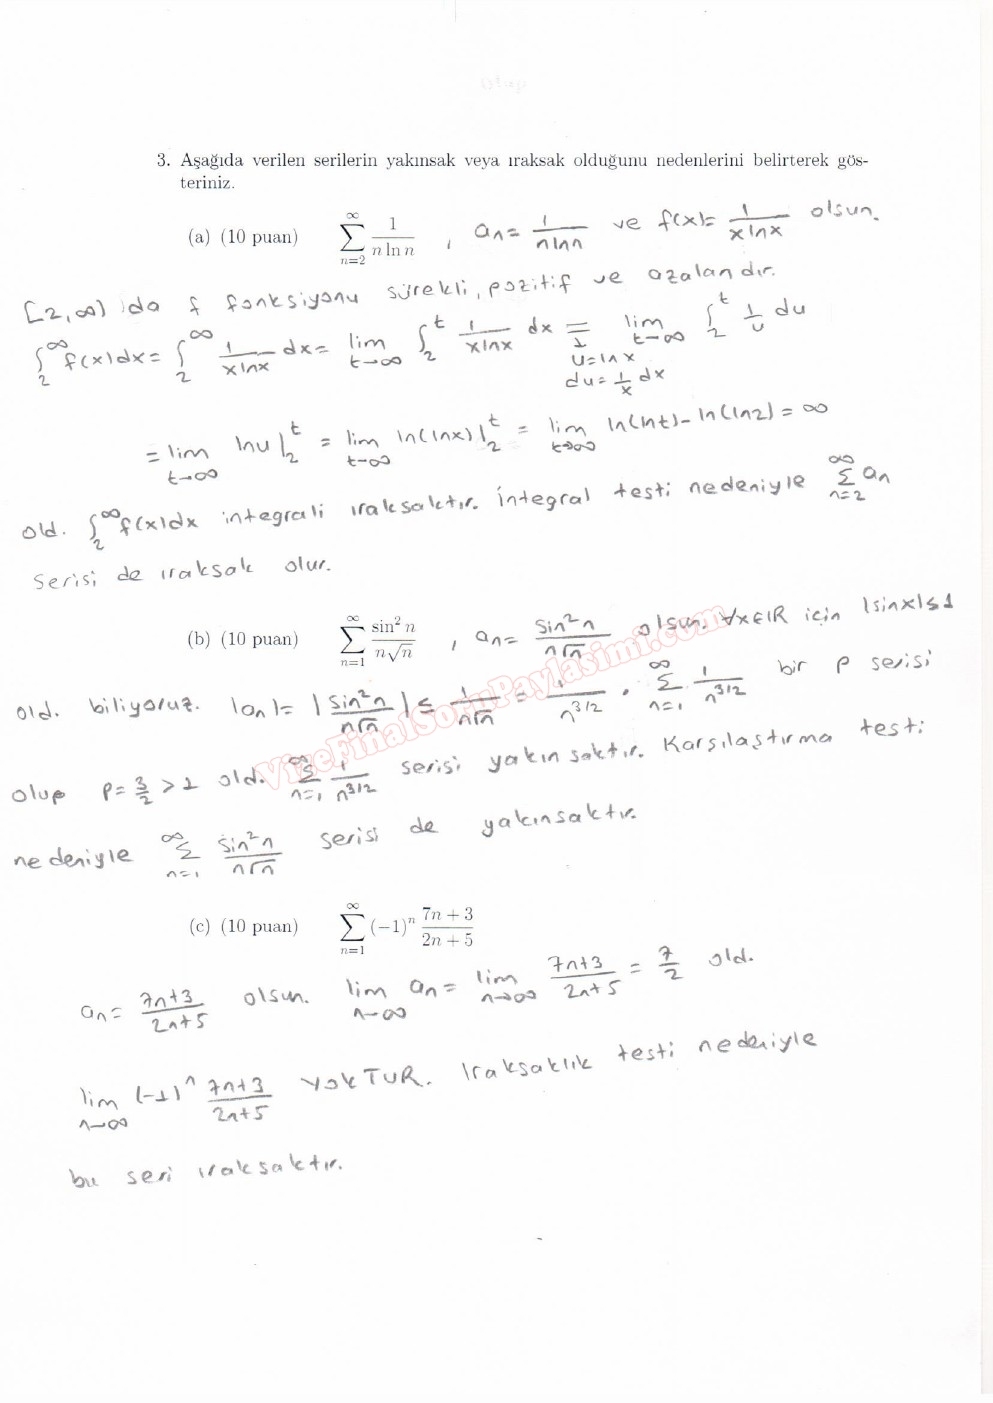 3. Aşağıda verilen serilerin yakınsak veya ıraksak olduğunu nedenlerini belirterek gös-
teriniz.
(a) (10 puan) \sum_{n=2}^{\infty} \frac{1}{n \ln n} , a_n = \frac{1}{n \ln n} ve f(x) = \frac{1}{x \ln x} olsun.
[2,∞) 'da f fonksiyonu sürekli, pozitif ve azalandır.
\int_2^{\infty} f(x)dx = \int_2^{\infty} \frac{1}{x \ln x} dx = \lim_{t→∞} \int_2^t \frac{1}{x \ln x} dx = \lim_{t→∞} \int_2^t \frac{1}{u} du
u = ln x
du = \frac{1}{x} dx
= \lim_{t→∞} ln u |_2^t = \lim_{t→∞} ln(ln x) |_2^t = \lim_{t→∞} ln(ln t) - ln(ln 2) = ∞
old. \int_2^{\infty} f(x)dx integrali ıraksaktır. İntegral testi nedeniyle \sum_{n=2}^{\infty} a_n
serisi de ıraksak olur.
(b) (10 puan) \sum_{n=1}^{\infty} \frac{\sin^2 n}{n\sqrt{n}} , a_n = \frac{\sin^2 n}{n\sqrt{n}} olsun. ∀x∈ℝ için |sinx|≤1
old. biliyoruz. |a_n| = |\frac{\sin^2 n}{n\sqrt{n}}| ≤ \frac{1}{n\sqrt{n}} = \frac{1}{n^{3/2}} . \sum_{n=1}^{\infty} \frac{1}{n^{3/2}} bir p serisi
olup p = \frac{3}{2} > 1 old. \sum_{n=1}^{\infty} \frac{1}{n^{3/2}} serisi yakınsaktır. Karşılaştırma testi
nedeniyle \sum_{n=1}^{\infty} \frac{\sin^2 n}{n\sqrt{n}} serisi de yakınsaktır.
VizeFinalSoruPaylasimi.com
(c) (10 puan) \sum_{n=1}^{\infty} (-1)^n \frac{7n+3}{2n+5}
a_n = \frac{7n+3}{2n+5} olsun. \lim_{n→∞} a_n = \lim_{n→∞} \frac{7n+3}{2n+5} = \frac{7}{2} old.
\lim_{n→∞} (-1)^n \frac{7n+3}{2n+5} YokTUR. Iraksaklık testi nedeniyle
bu seri ıraksaktır.